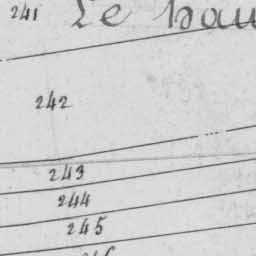 241 Le hau
242
243
244
245